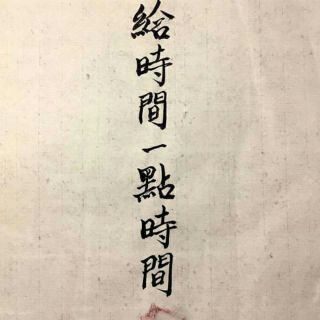 給時間一點時間